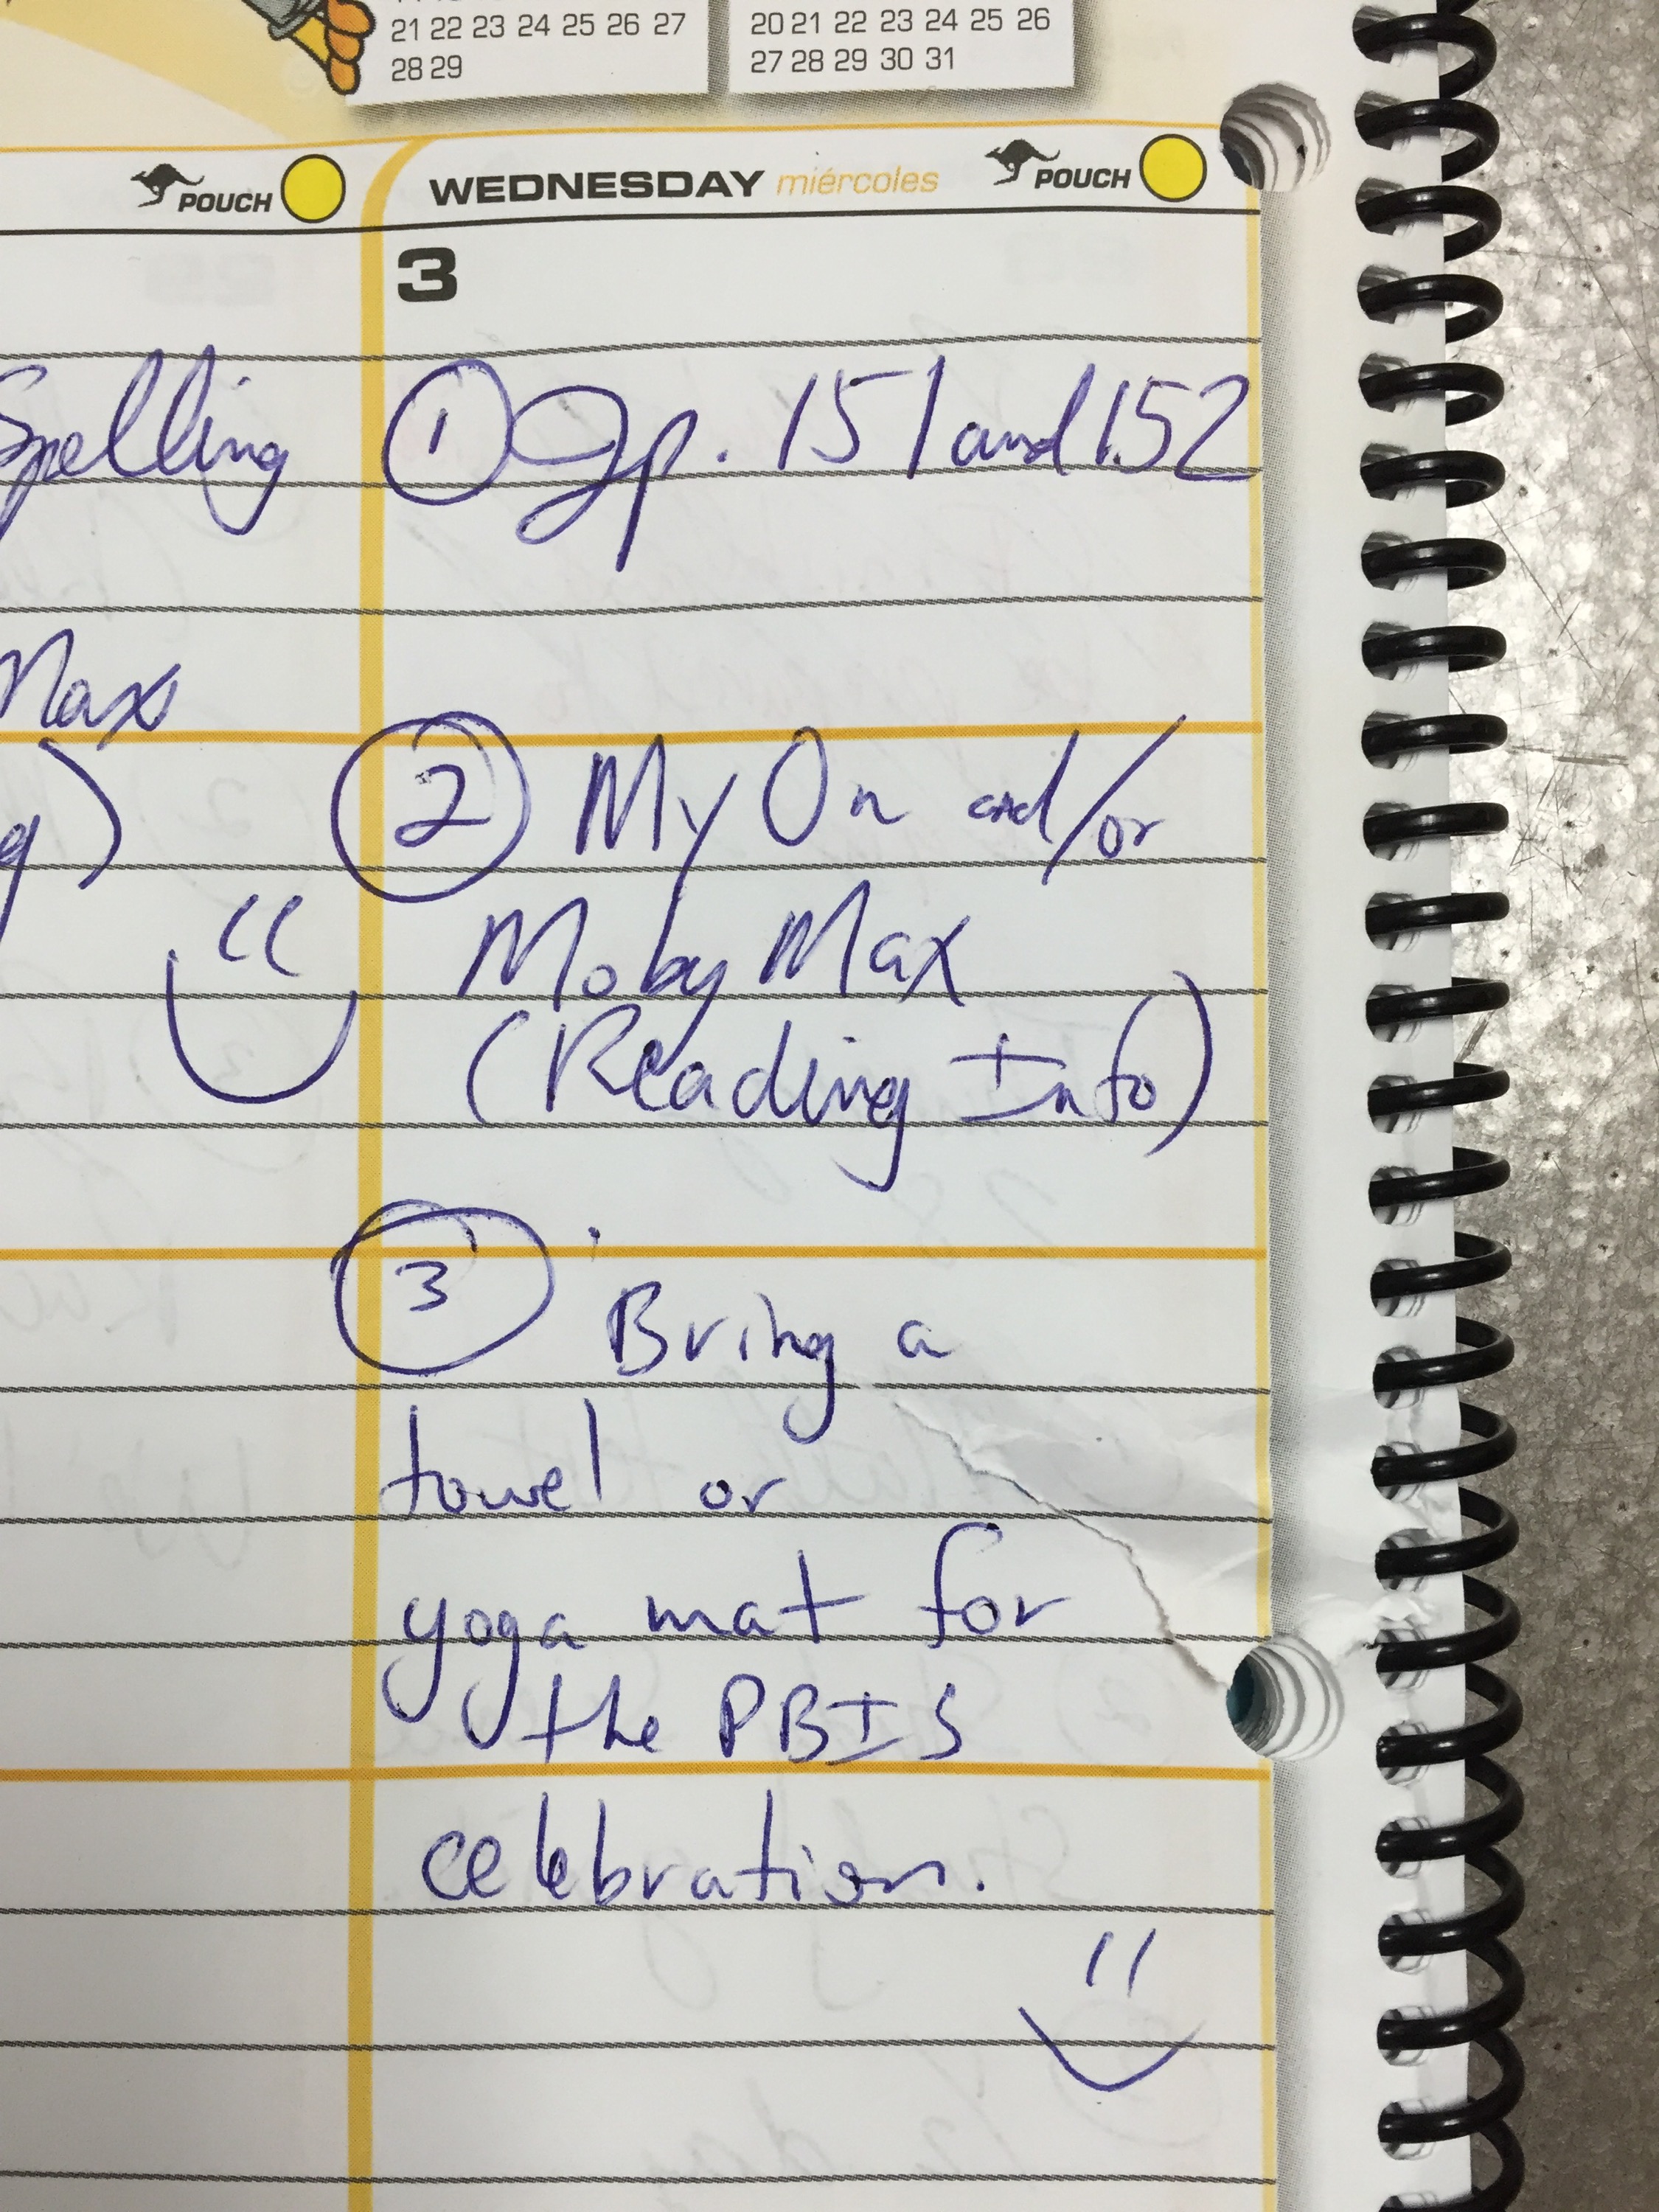 21 22 23 24 25 26 27
28 29
20 21 22 23 24 25 26
27 28 29 30 31
POUCH
Spelling
Max
g)
WEDNESDAY miércoles POUCH
3
① p. 151 and 152
② My On and/or
Moby Max
(Reading Info)
③ Bring a
towel or
yoga mat for
the PBIS
celebration.